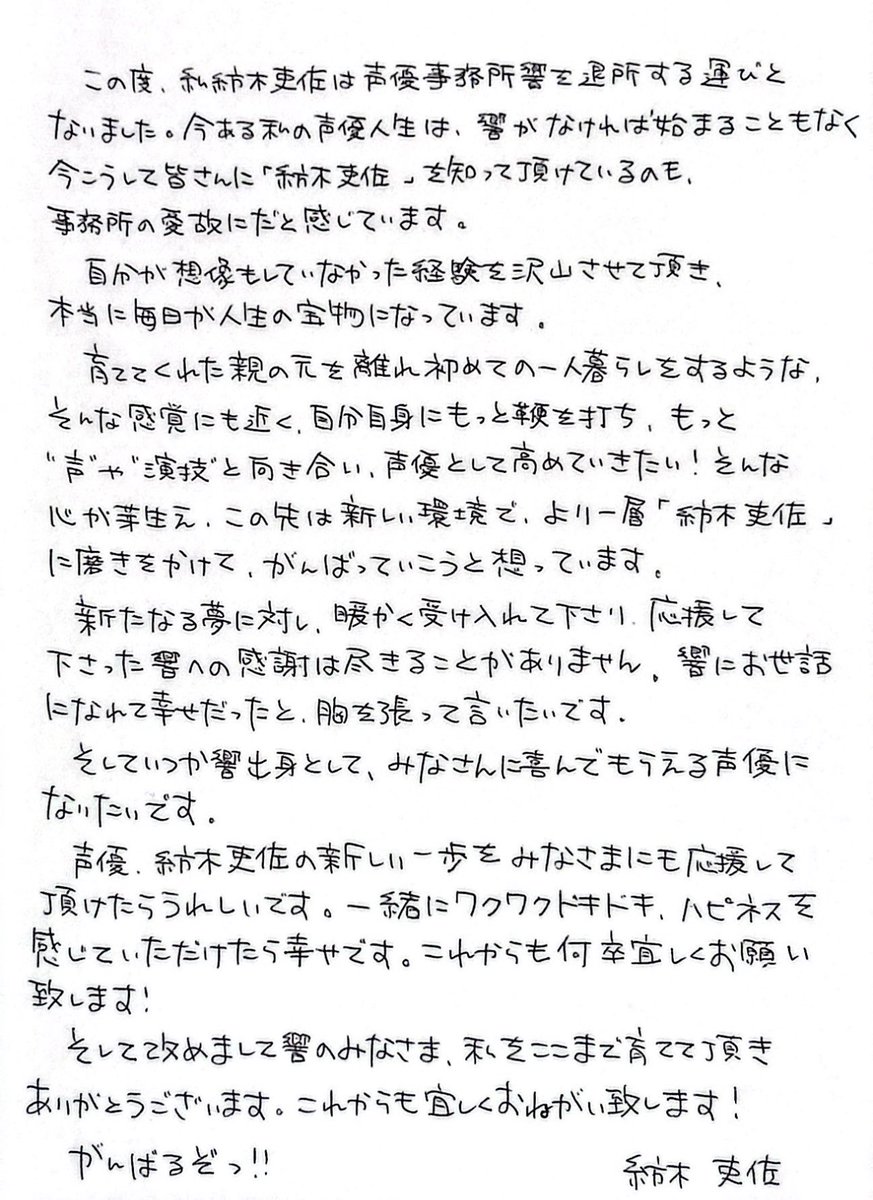 この度、私紡木吏佐は声優事務所響を退所する運びと
なりました。今ある私の声優人生は、響がなければ始まることもなく
今こうして皆さんに「紡木吏佐」を知って頂けているのも、
事務所の愛故にだと感じています。
自分が想像もしていなかった経験を沢山させて頂き、
本当に毎日が人生の宝物になっています。
育ててくれた親の元を離れ初めての一人暮らしをするような、
そんな感覚にも近く、自分自身にもっと鞭を打ち、もっと
"声"や"演技"と向き合い、声優として高めていきたい！そんな
心が芽生え、この先は新しい環境で、より一層「紡木吏佐」
に磨きをかけて、がんばっていこうと想っています。
新たなる夢に対し、暖かく受け入れて下さり、応援して
下さった響への感謝は尽きることがありません。響にお世話
になれて幸せだったと、胸を張って言いたいです。
そしていつか響出身として、みなさんに喜んでもらえる声優に
なりたいです。
声優、紡木吏佐の新しい一歩をみなさまにも応援して
頂けたらうれしいです。一緒にワクワクドキドキ、ハピネスを
感じていただけたら幸せです。これからも何卒宜しくお願い
致します！
そして改めまして響のみなさま、私をここまで育てて頂き
ありがとうございます。これからも宜しくおねがい致します！
がんばるぞっ!!
紡木 吏佐